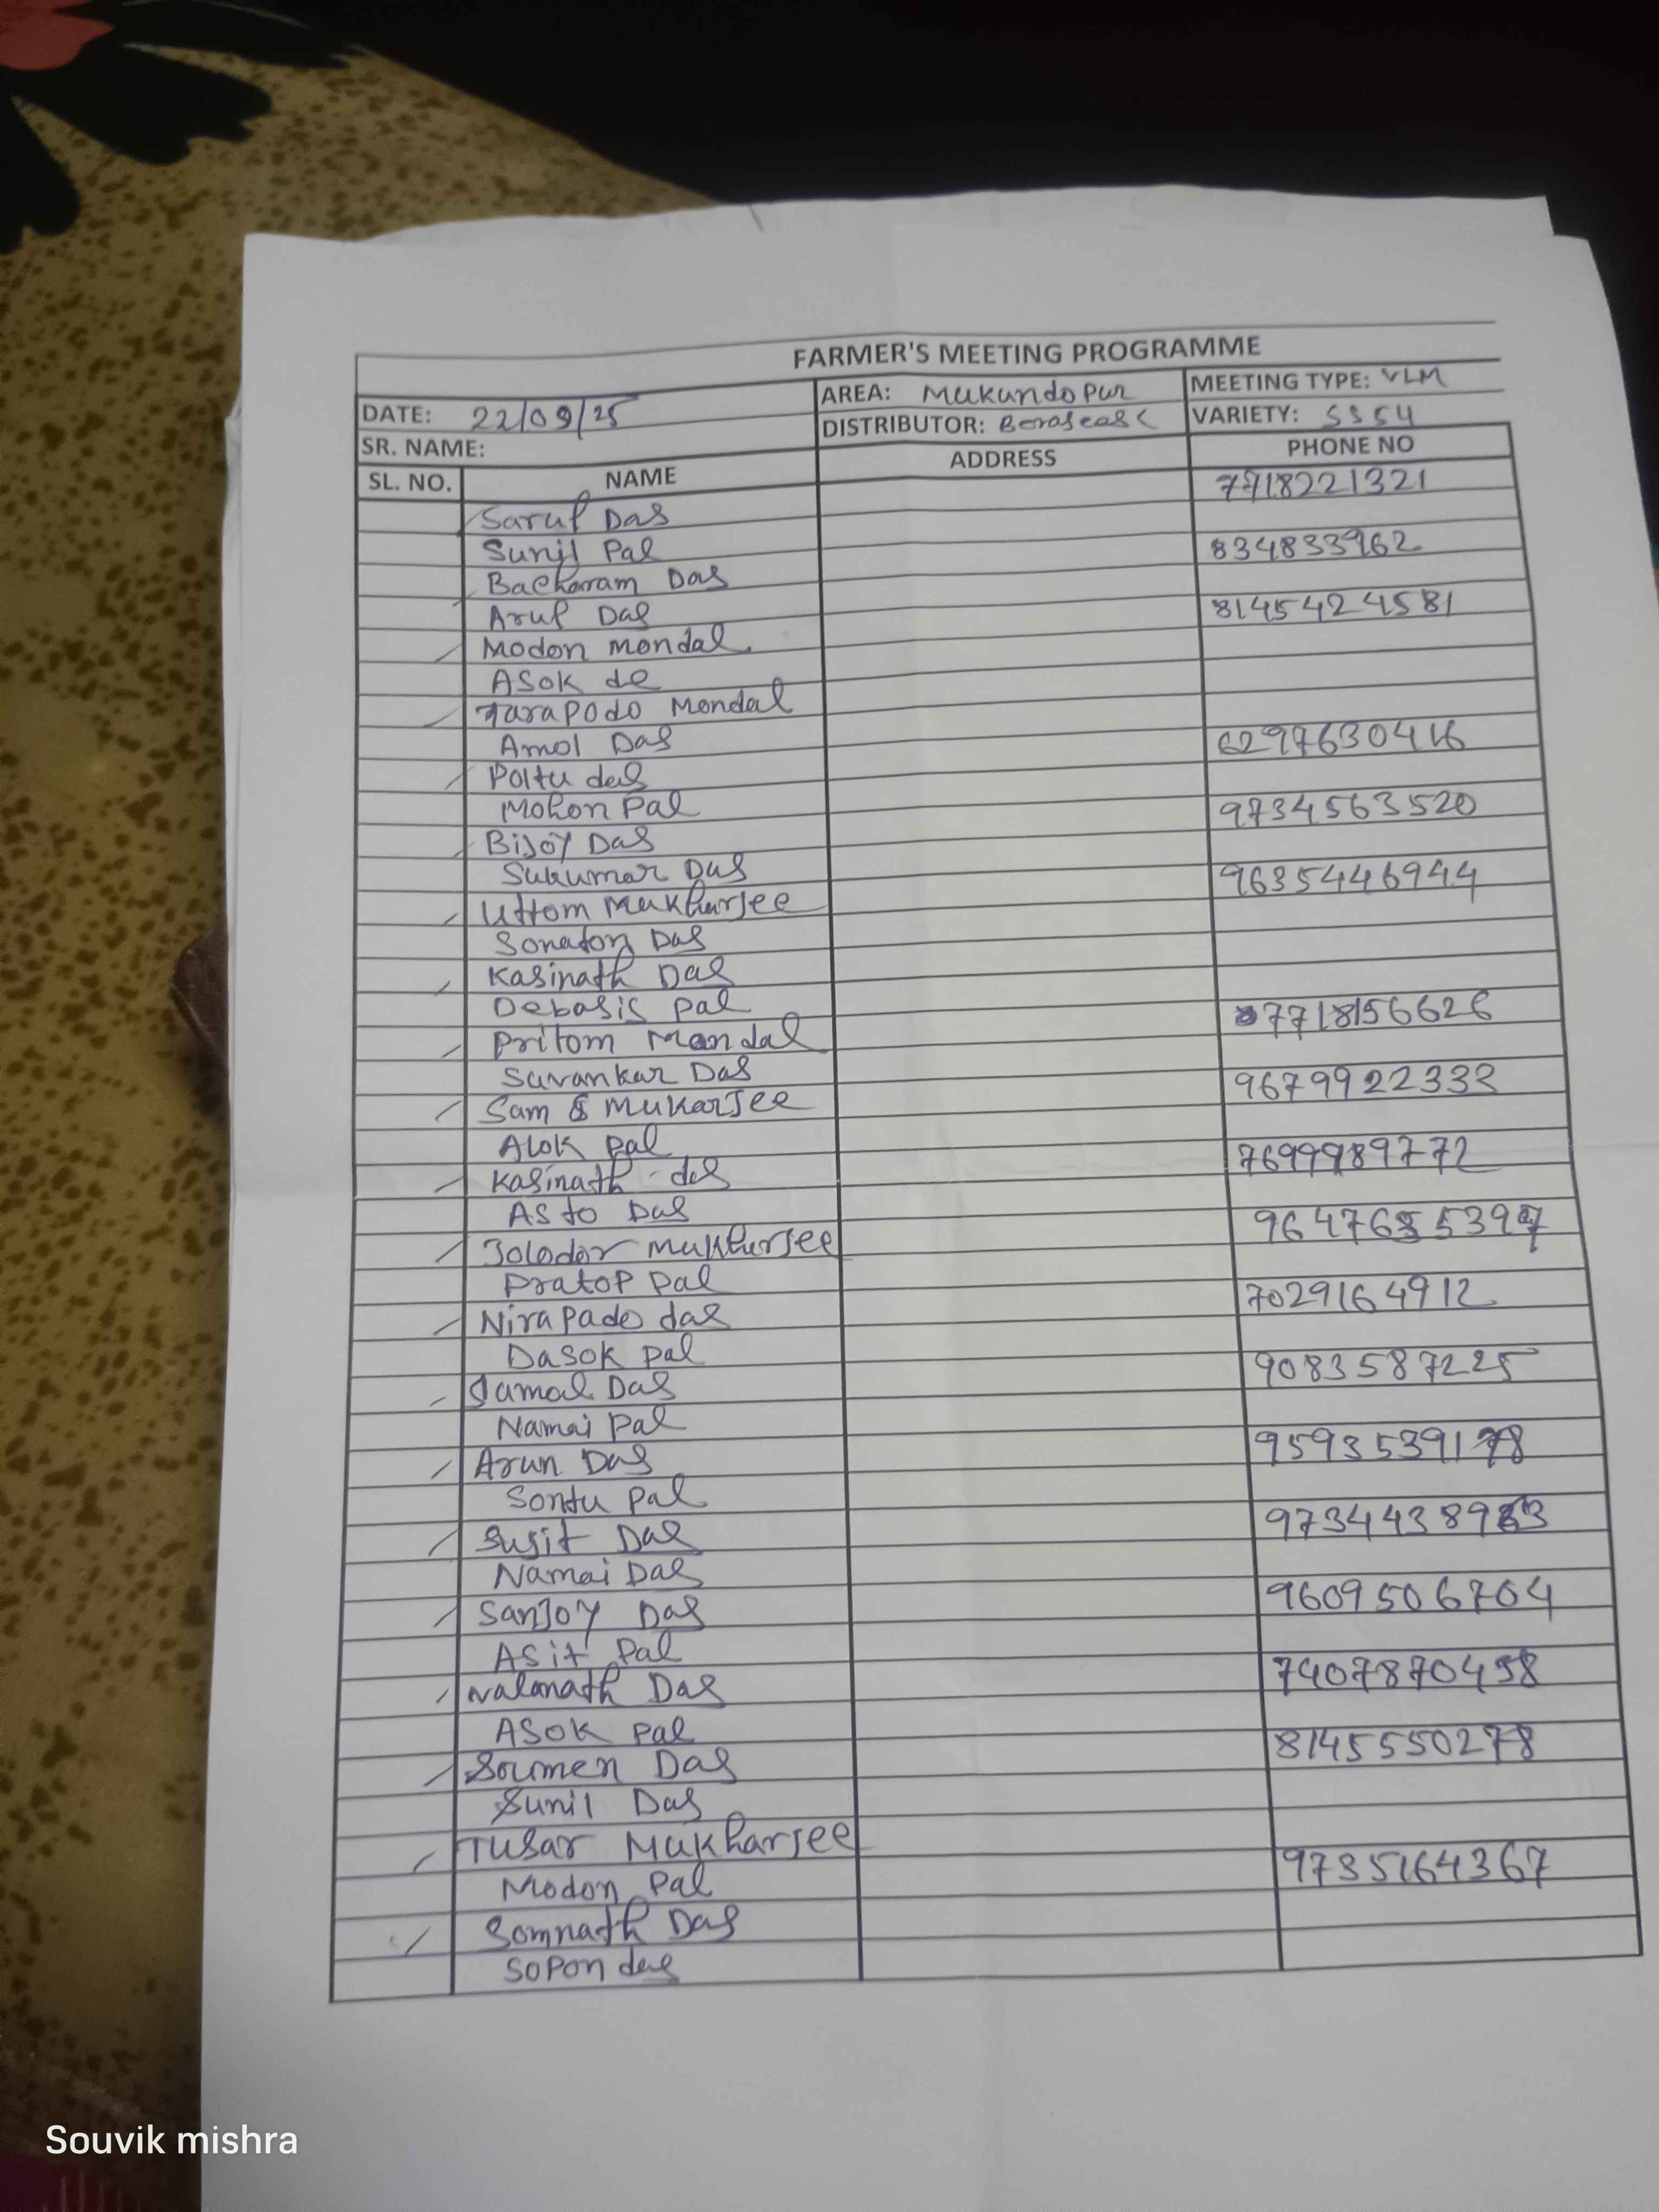 FARMER'S MEETING PROGRAMME
DATE: 22/09/25 AREA: Mukundopur MEETING TYPE: VLM
SR. NAME: DISTRIBUTOR: VARIETY: SS54
SL. NO. NAME ADDRESS PHONE NO
Sarup Das 7718221321
Sunil Pal
Bacharam Das 834833962
Arup Das
Modon mondal 8145424581
Asok de
Tarapodo Mondal
Amol Das
Poltu das 6297630416
Mohon Pal
Bijoy Das 9734563520
Sukumar Das
Uttom Mukharjee 9635446944
Sonaton Das
Kasinath Das
Debasis pal
Pritom Mondal 7718156626
Suvankar Das
Sam Mukarjee 9679922333
Alok pal
Kasinath das 7699989772
Asto Das
Jolodor Mukharjee
Pratop pal
Nirapado das 7029164912
Dasok pal
Jamal Das 9083587225
Namai Pal
Arun Das 9593539178
Sontu pal
Susit Das
Namai Das
Sanjoy Das 9609506704
Asit Pal
Das 7407870458
Asok pal
Soumen Das 8145550278
Sunil Das
Tusar Mukharjee
Modon pal 9735164367
Somnath Das
Sopon das
Souvik mishra